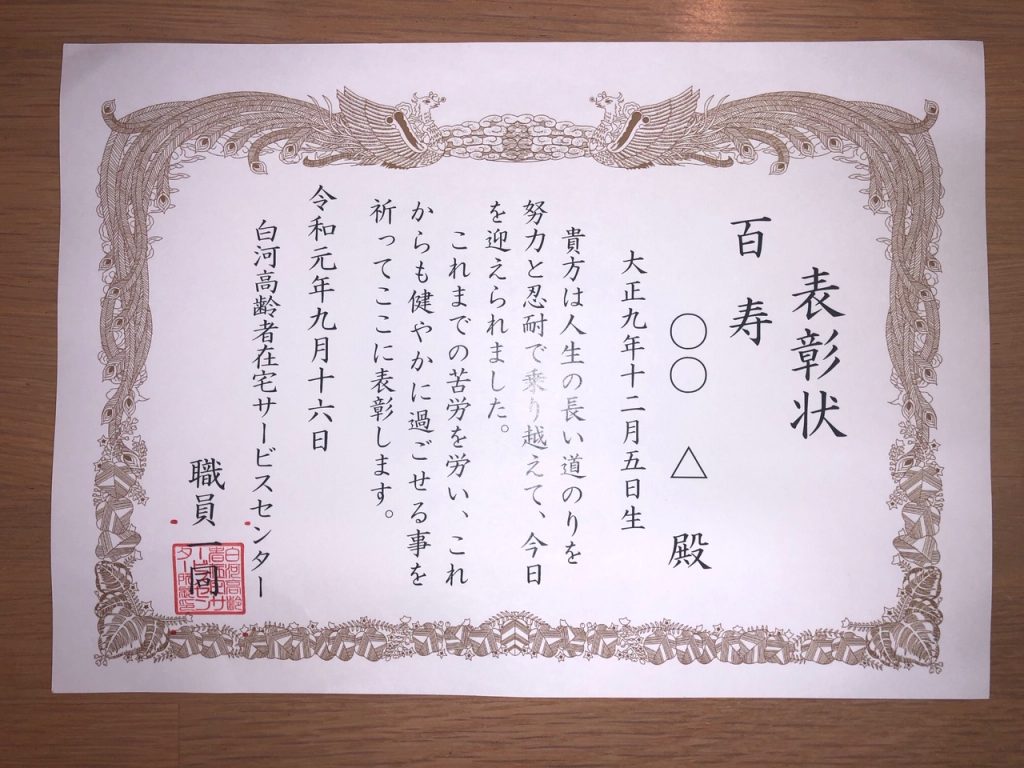 表彰状
百寿
〇〇 △ 殿
大正九年十二月五日生
貴方は人生の長い道のりを
努力と忍耐で乗り越えて、今日
を迎えられました。
これまでの苦労を労い、これ
からも健やかに過ごせる事を
祈ってここに表彰します。
令和元年九月十六日
白河高齢者在宅サービスセンター
職員一同